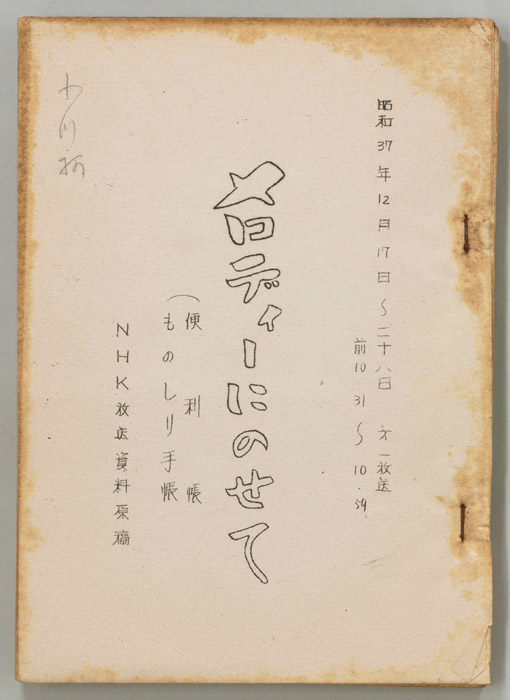 昭和37年12月17日～二十八日 才一放送
前10.31～10.59
メロディーにのせて
(便利帳
ものしり手帳
NHK放送資料原稿
小川